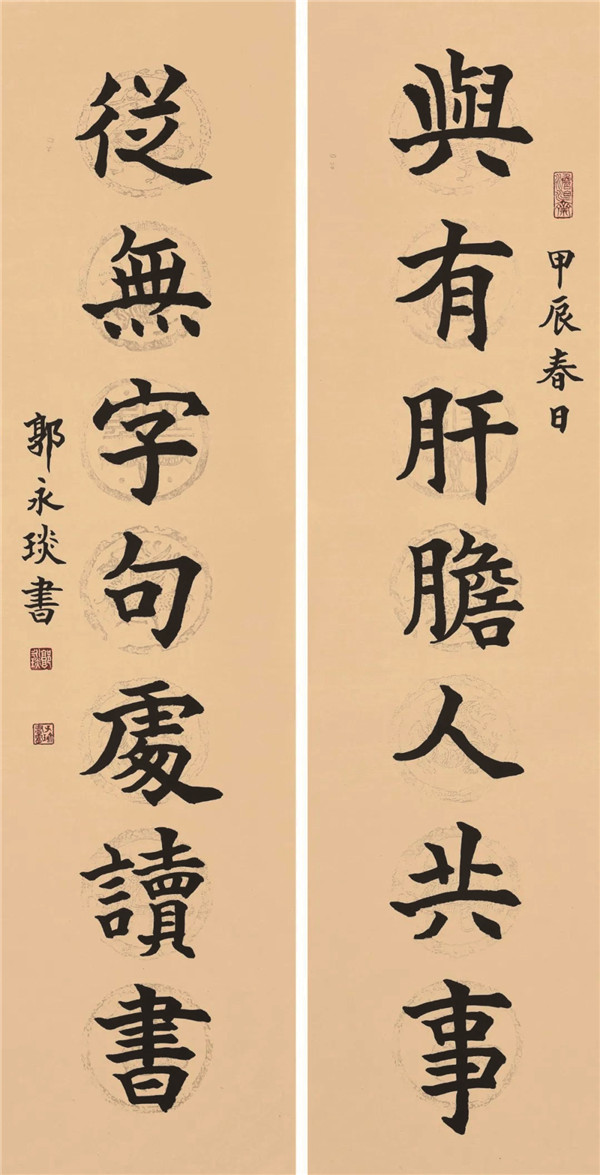 甲辰春日
與有肝膽人共事
從無字句處讀書
郭永琰書